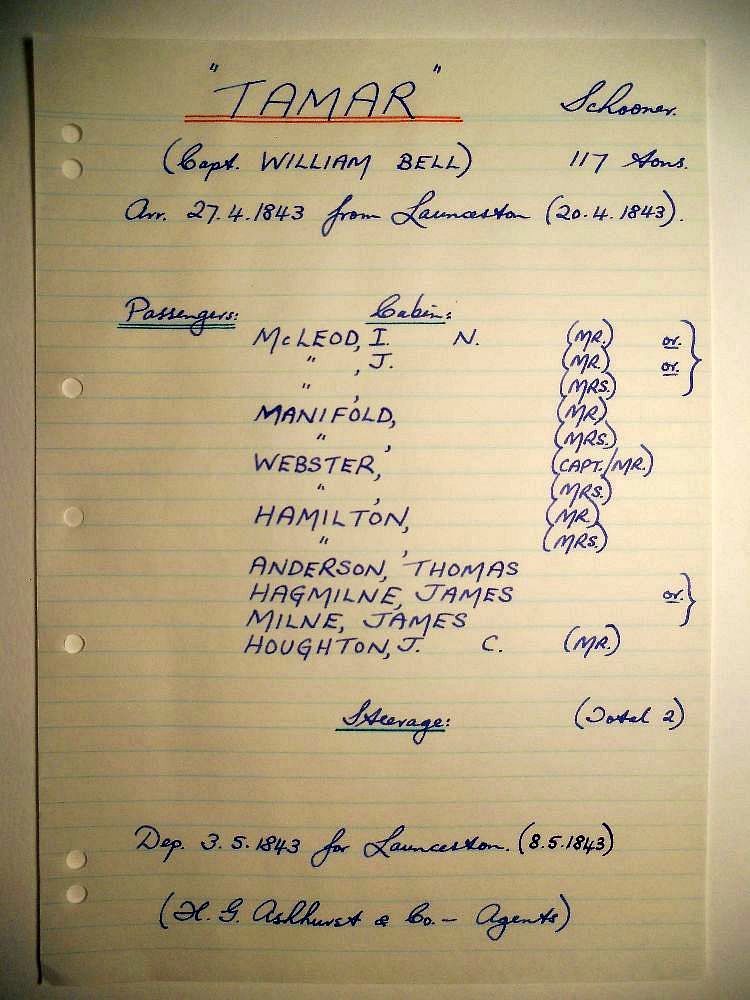 "TAMAR" Schooner.
(Capt. WILLIAM BELL) 117 tons.
Arr. 27.4.1843 from Launceston (20.4.1843).
Passengers: Cabin:
McLEOD, I. N. (MR.) or.
" , J. (MR.) or.
" , (MRS.)
MANIFOLD, (MR.)
" , (MRS.)
WEBSTER, (CAPT./MR.)
" , (MRS.)
HAMILTON, (MR.)
" , (MRS.)
ANDERSON, THOMAS
HAGMILNE, JAMES or.
MILNE, JAMES
HOUGHTON, J. C. (MR.)
Steerage: (Total 2)
Dep. 3.5.1843 for Launceston. (8.5.1843)
(H. G. Ashhurst & Co. - Agents)